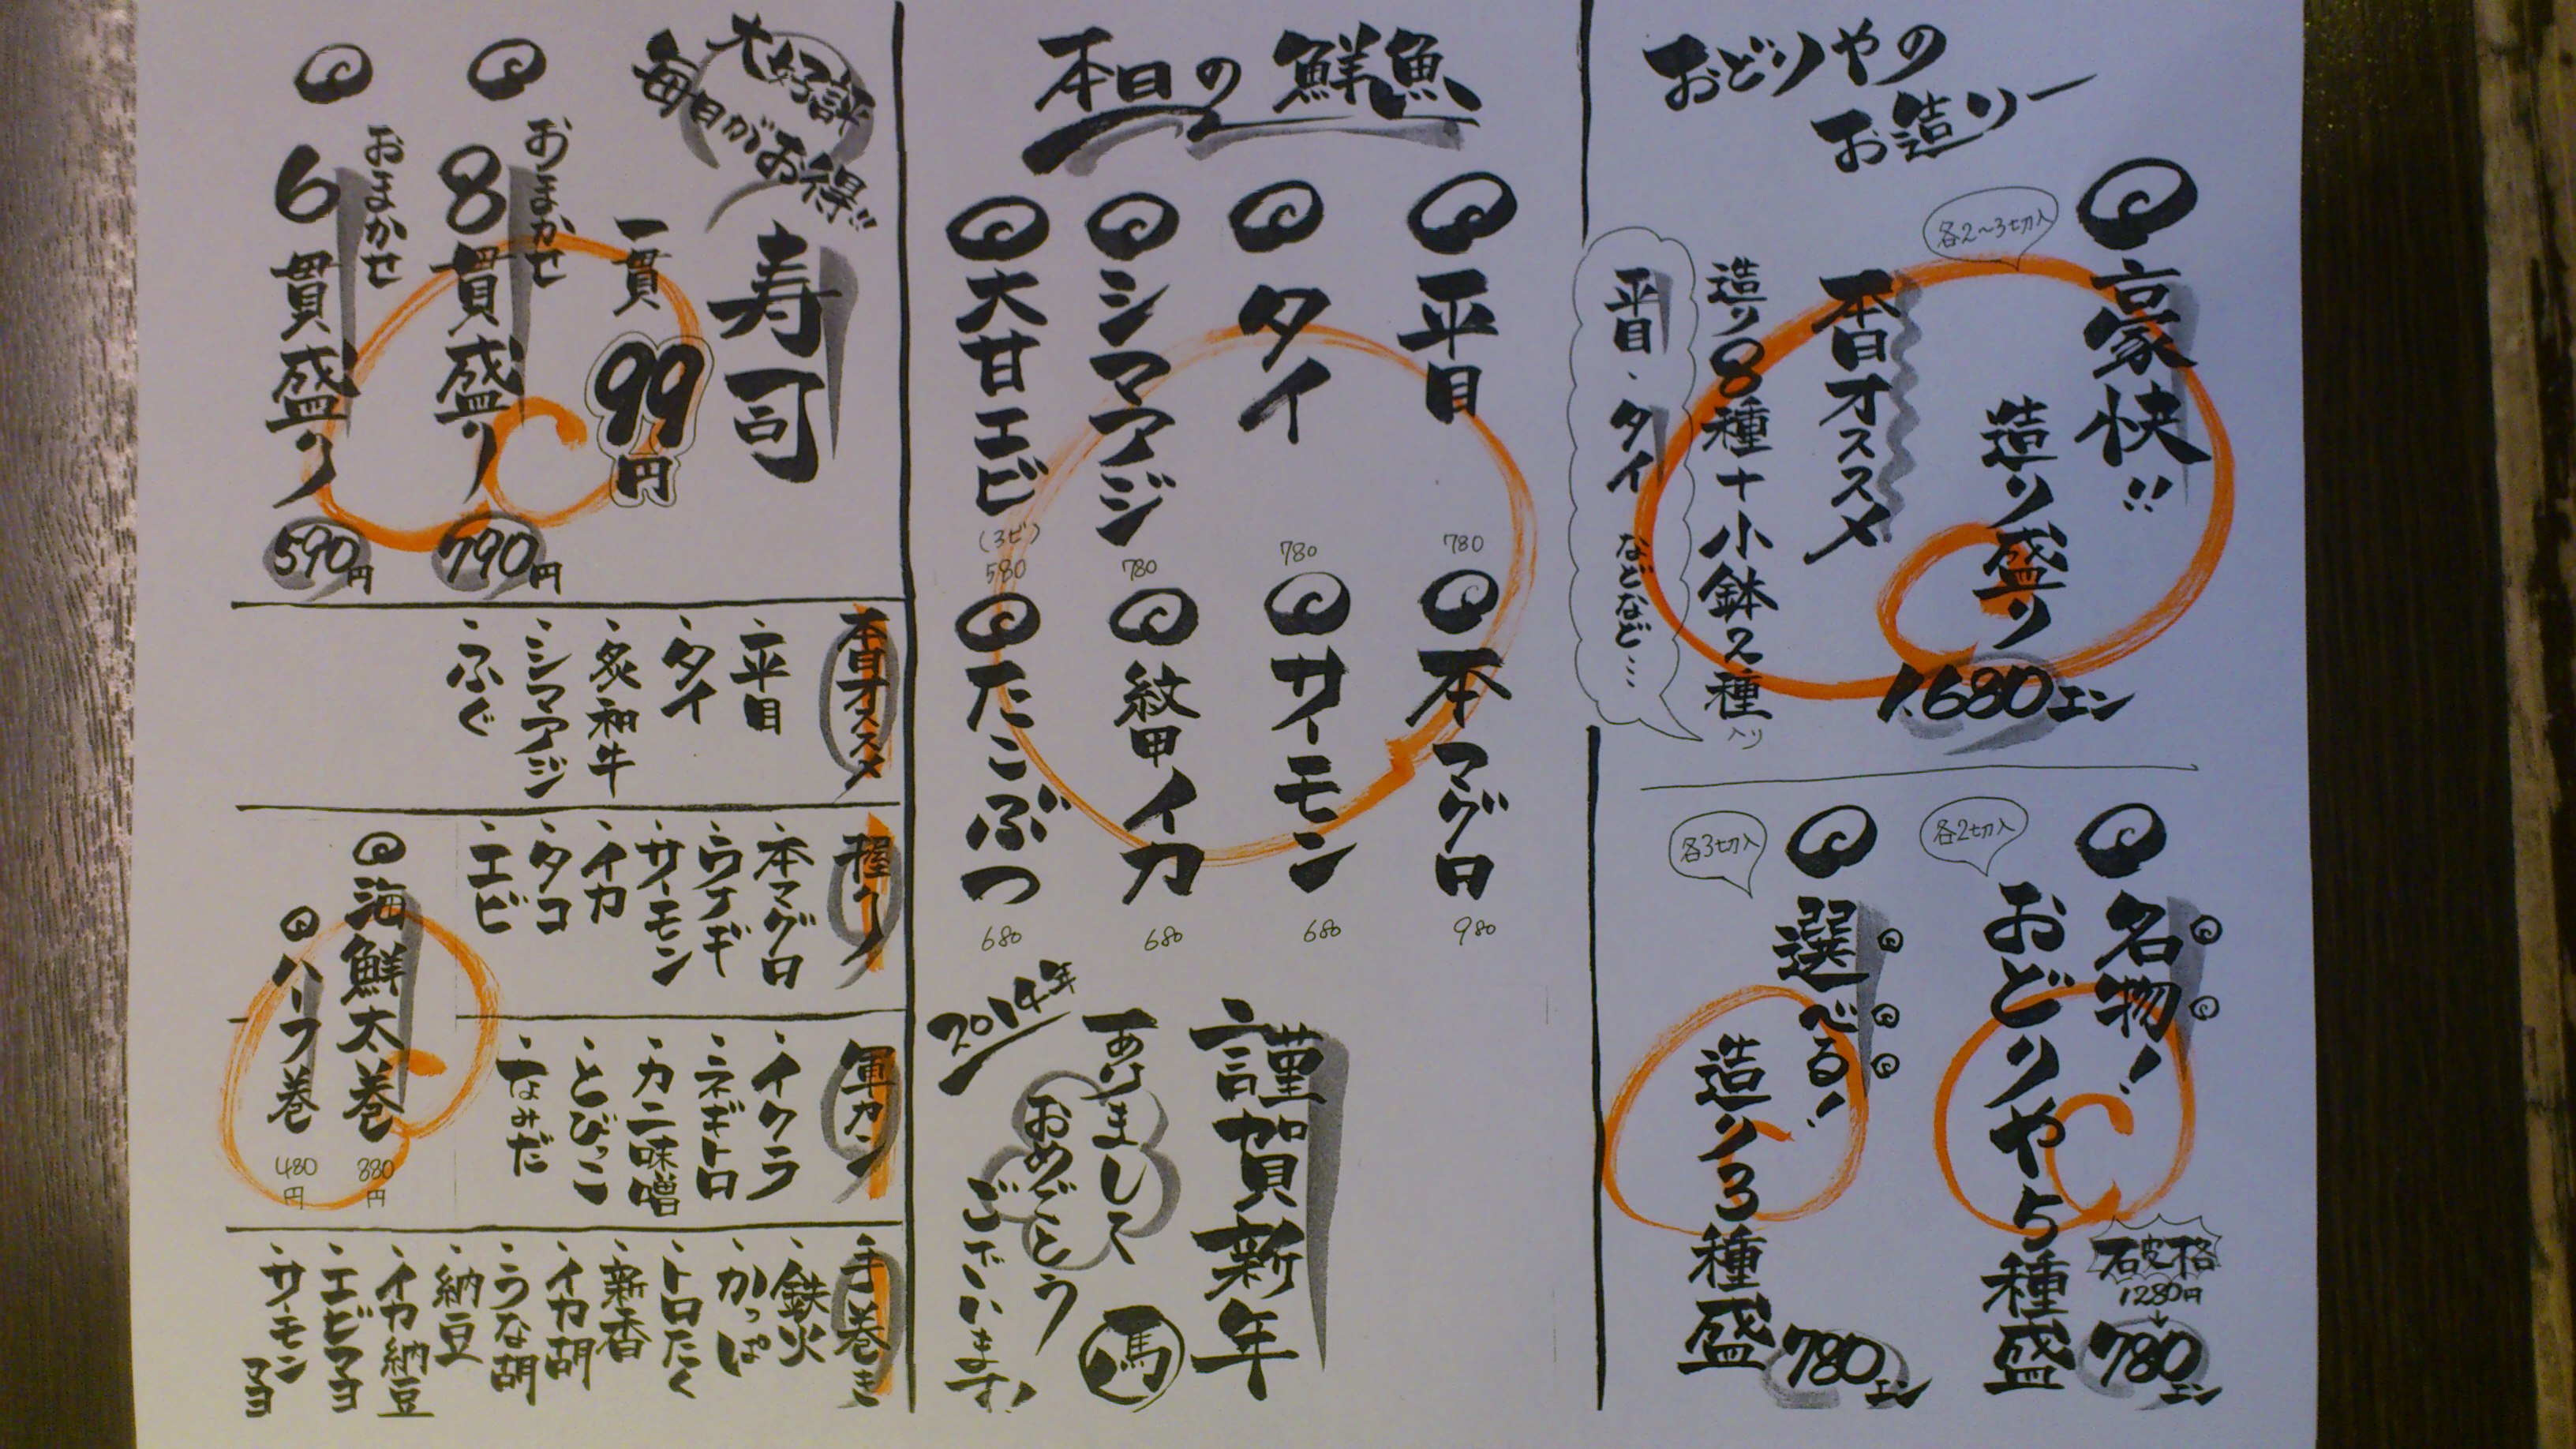 おどりやの
お造り
豪快!!
造り盛り
1,680エン
各2〜3切入
本日オススメ
造り8種+小鉢2種
入り
平目、タイ などなど…
名物!
おどりや5種盛
各2切入
破格
1280円
780エン
選べる!
造り3種盛
各3切入
780エン
本日の鮮魚
平目
780
タイ
780
シマアジ
780
大甘エビ
(3ビ)
580
本マグロ
980
サーモン
680
紋甲イカ
680
たこぶつ
680
謹賀新年
あけまして
おめでとう
ございます!
2014年
馬
大好評
毎日がお得!!
寿司
一貫
99円
おまかせ
8貫盛り
790円
おまかせ
6貫盛り
590円
本日オススメ
・平目
・タイ
・炙和牛
・シマアジ
・ふぐ
握り
・本マグロ
・ウナギ
・サーモン
・イカ
・タコ
・エビ
海鮮太巻
880円
ハーフ巻
480円
軍カン
・イクラ
・ネギトロ
・カニ味噌
・とびっこ
・なみだ
手巻き
・鉄火
・かっぱ
・トロたく
・新香
・イカ胡
・うな胡
・納豆
・イカ納豆
・エビマヨ
・サーモンマヨ